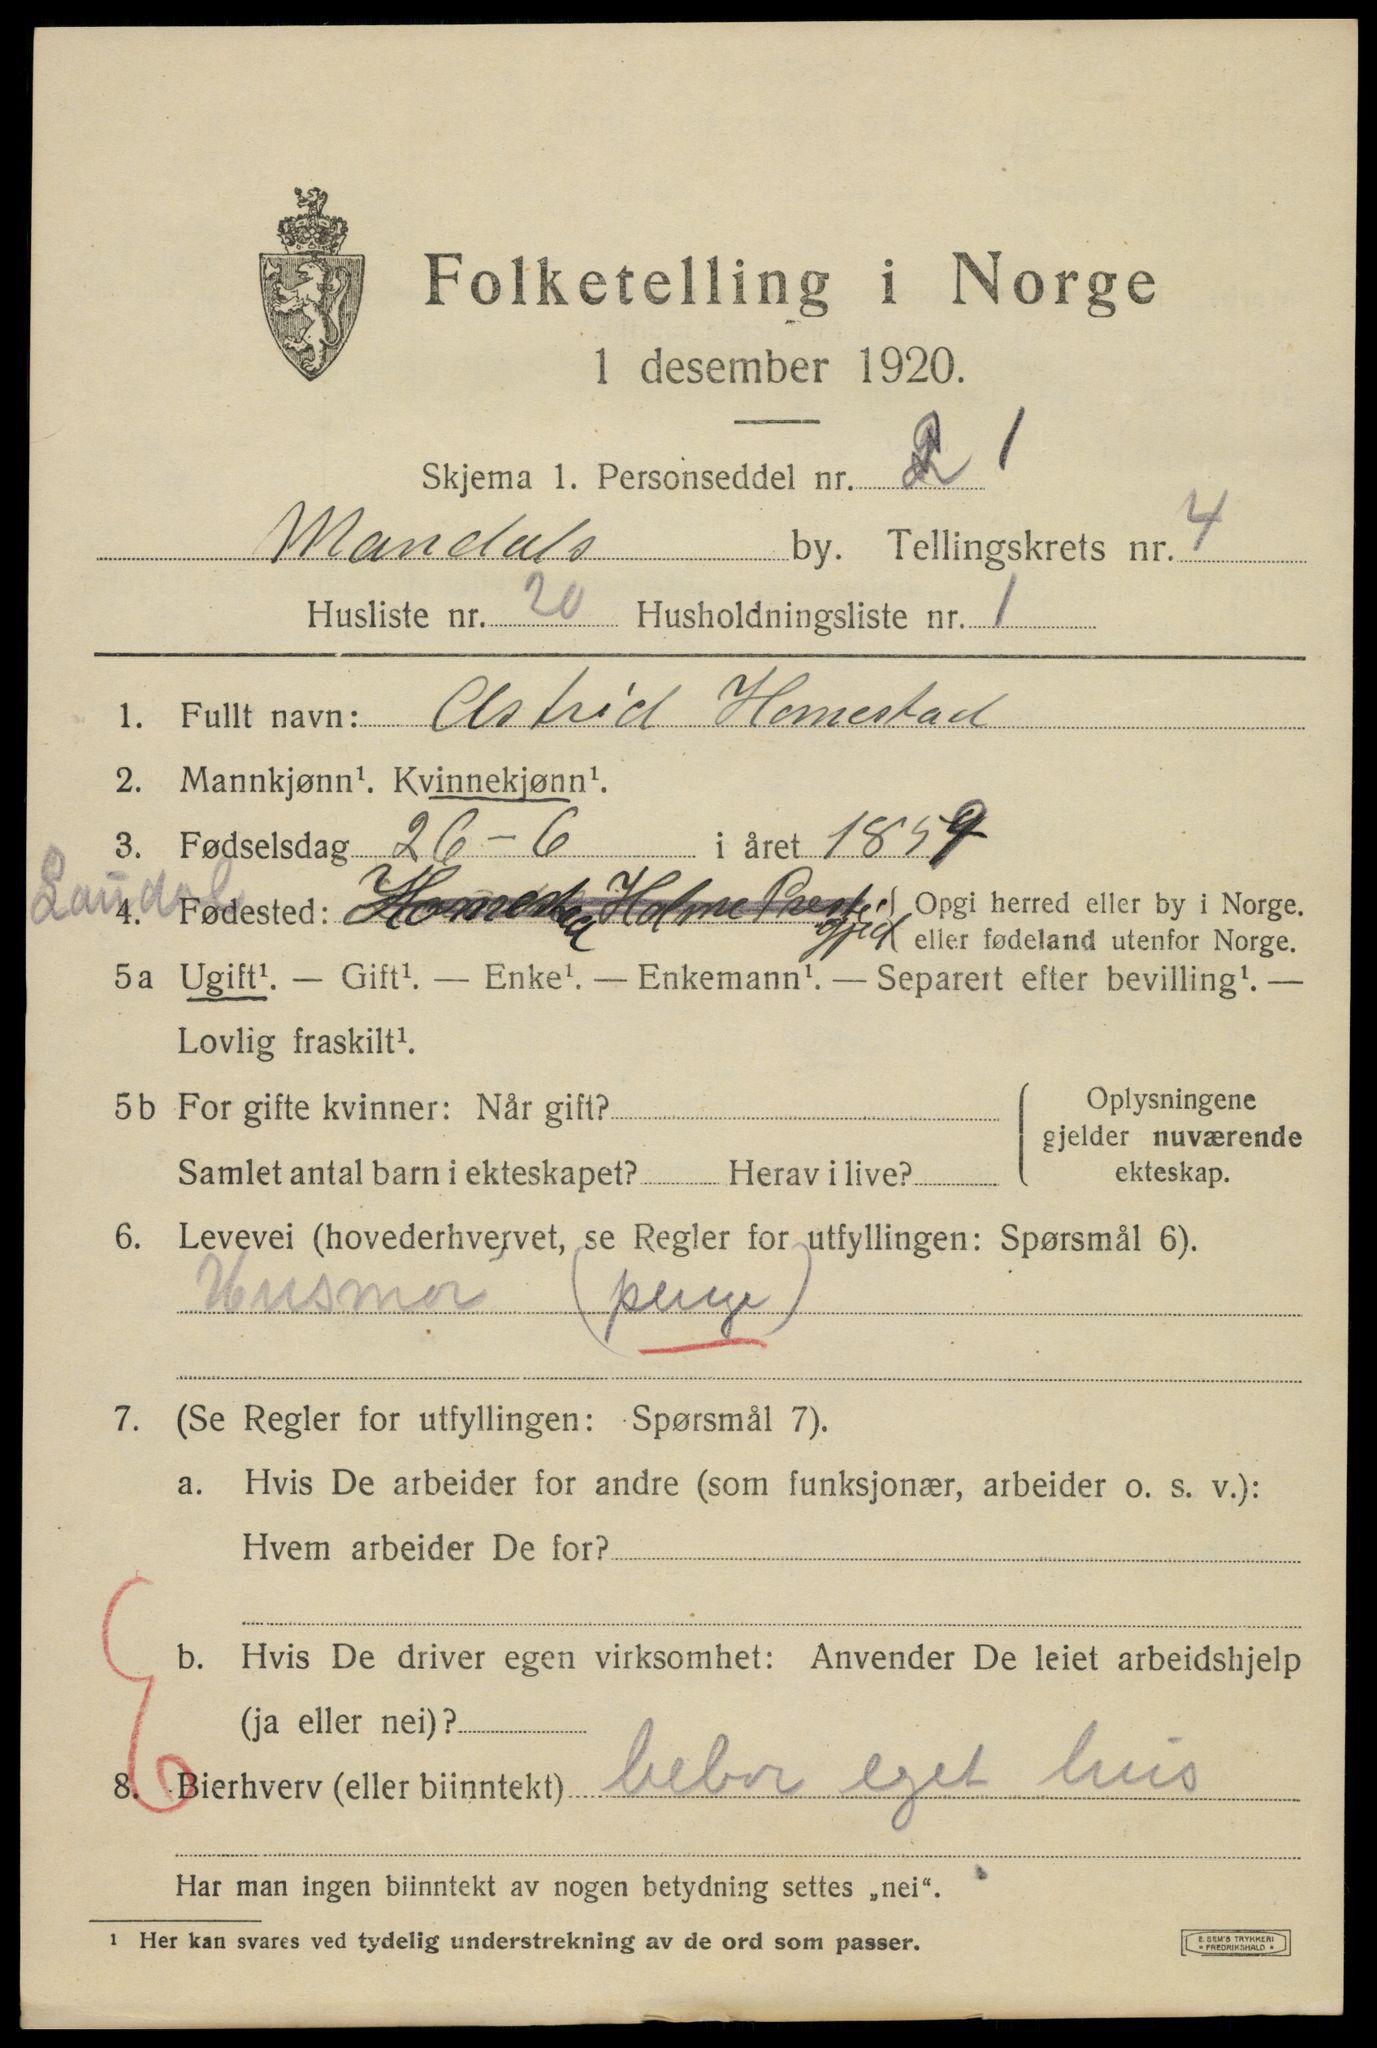 Folketelling i Norge
1 desember 1920.
Skjema 1. Personseddel nr. 1
Mandals by. Tellingskrets nr. 4
Husliste nr. 20 Husholdningsliste nr. 1
1. Fullt navn: Astrid Homestad
2. Mannkjønn¹. Kvinnekjønn¹.
3. Fødselsdag 26-6 i året 1859
Laudal
4. Fødested: Homestad Holme Preste Opgi herred eller by i Norge.
gjeld eller fødeland utenfor Norge.
5a Ugift¹. — Gift¹. — Enke¹. — Enkemann¹. — Separert efter bevilling¹. —
Lovlig fraskilt¹.
5b For gifte kvinner: Når gift? Oplysningene
gjelder nuværende
Samlet antal barn i ekteskapet? Herav i live? ekteskap.
6. Levevei (hovederhvervet, se Regler for utfyllingen: Spørsmål 6).
Husmor (penge)
7. (Se Regler for utfyllingen: Spørsmål 7).
a. Hvis De arbeider for andre (som funksjonær, arbeider o. s. v.):
Hvem arbeider De for?
b. Hvis De driver egen virksomhet: Anvender De leiet arbeidshjelp
(ja eller nei)?
8. Bierhverv (eller biinntekt) bebor eget hus
Har man ingen biinntekt av nogen betydning settes „nei“.
¹ Her kan svares ved tydelig understrekning av de ord som passer.
E. SEM'S TRYKKERI
* FREDRIKSHALD *